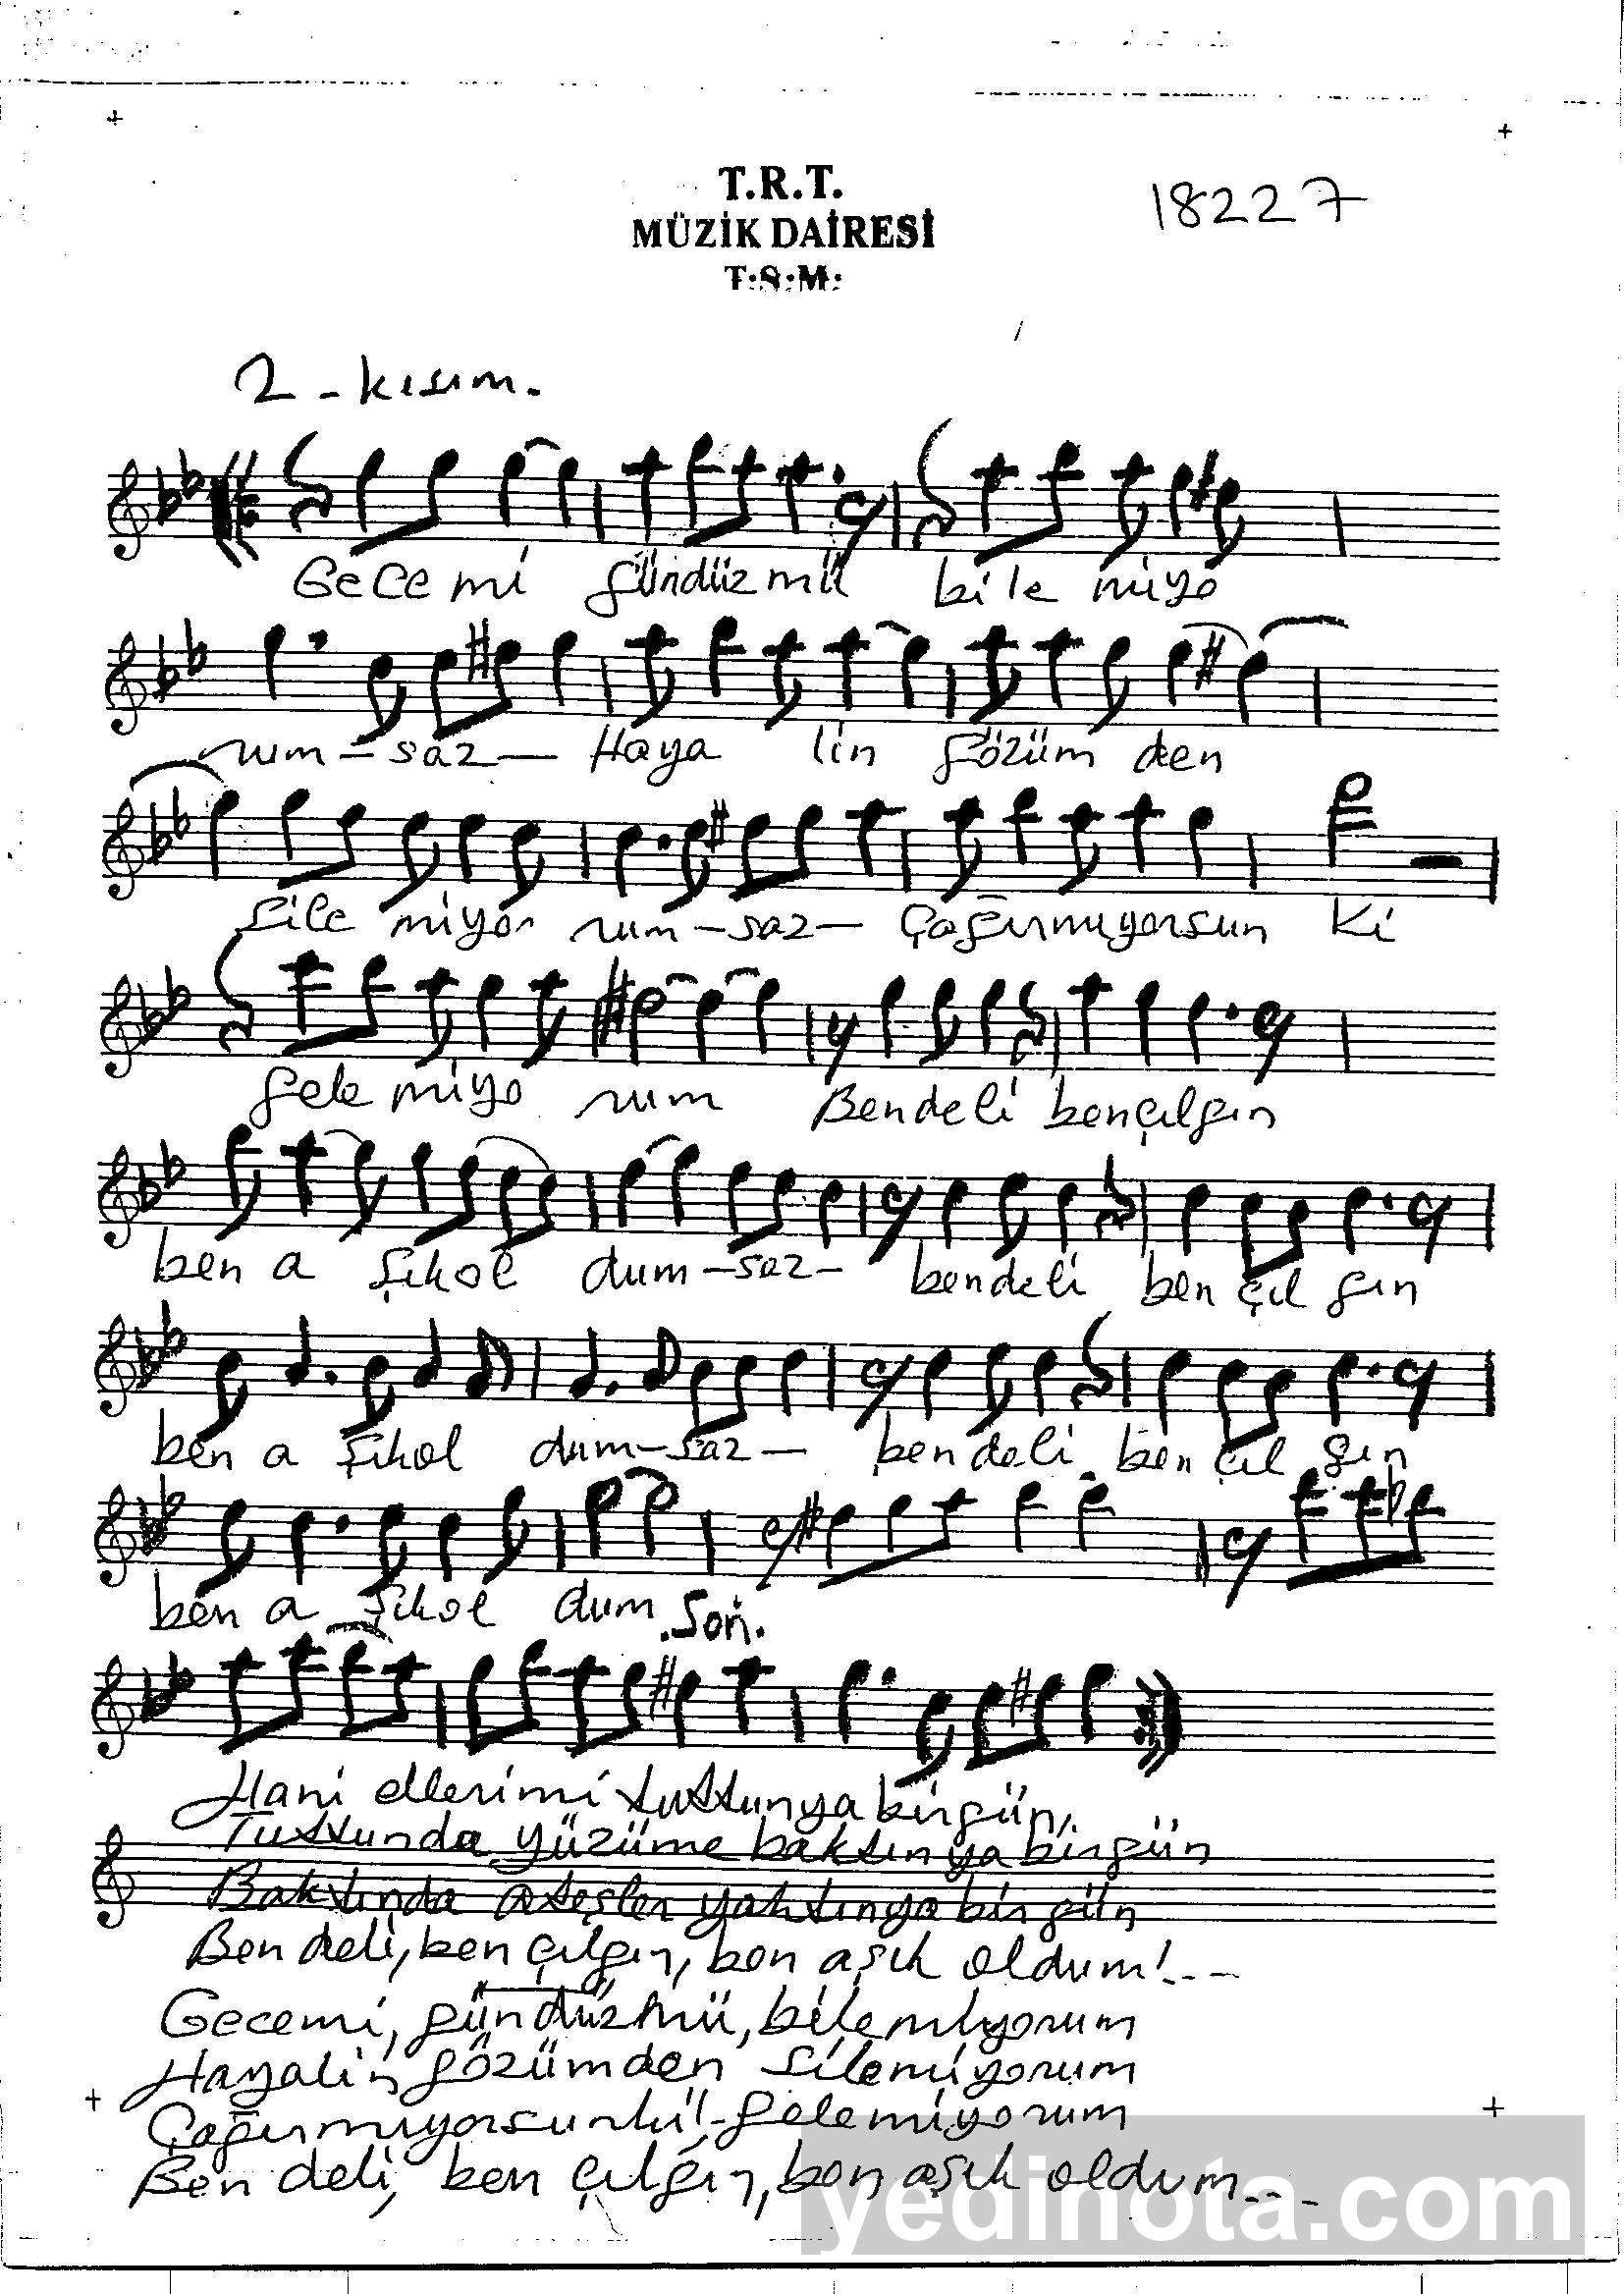 T.R.T.
MÜZİK DAİRESİ
T.S.M.
18227
2 - kısım.
Gece mi gündüz mü bile miyo
rum - saz - Haya lin gözüm den
sile miyor rum - saz - Çağırmıyorsun ki
gele miyo rum Bendeli bençılgın
ben a şıkol dum - saz - bendeli ben çıl gın
ben a şıkol dum - saz - bendeli ben çıl gın
ben a şıkol dum
.Son.
Hani ellerimi tuttunya birgün,
Tuttunda yüzüme baktınya birgün
Baktında ateşler yaktınya birgün
Ben deli, ben çılgın, ben aşık oldum!...
Gecemi, gündüzmü, bilemiyorum
Hayalin gözümden silemiyorum
Çağırmıyorsunki!- gelemiyorum
Ben deli, ben çılgın, ben aşık oldum...
yedinota.com